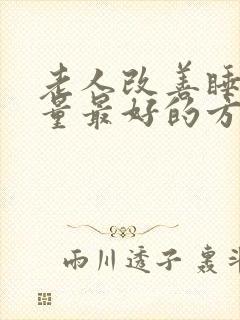 老人改善睡
量最好的方
雨川透子 裏斗